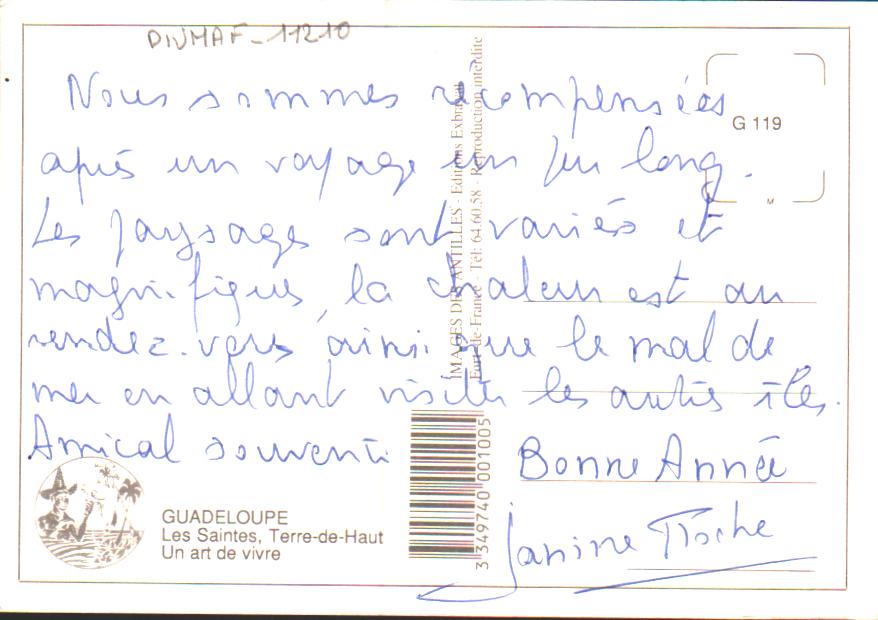 DIVMAF-11210
Nous sommes récompensées
après un voyage un peu long.
Les paysages sont variés et
magnifiques, la chaleur est au
rendez-vous ainsi que le mal de
mer en allant visiter les autres îles.
Amical souvenir
Bonne Année
Janine
G 119
M
IMAGES DES ANTILLES - Editions Exbrayat
Fort-de-France - Tél: 64.60.58 - Reproduction interdite
3 349740 001005
GUADELOUPE
Les Saintes, Terre-de-Haut
Un art de vivre